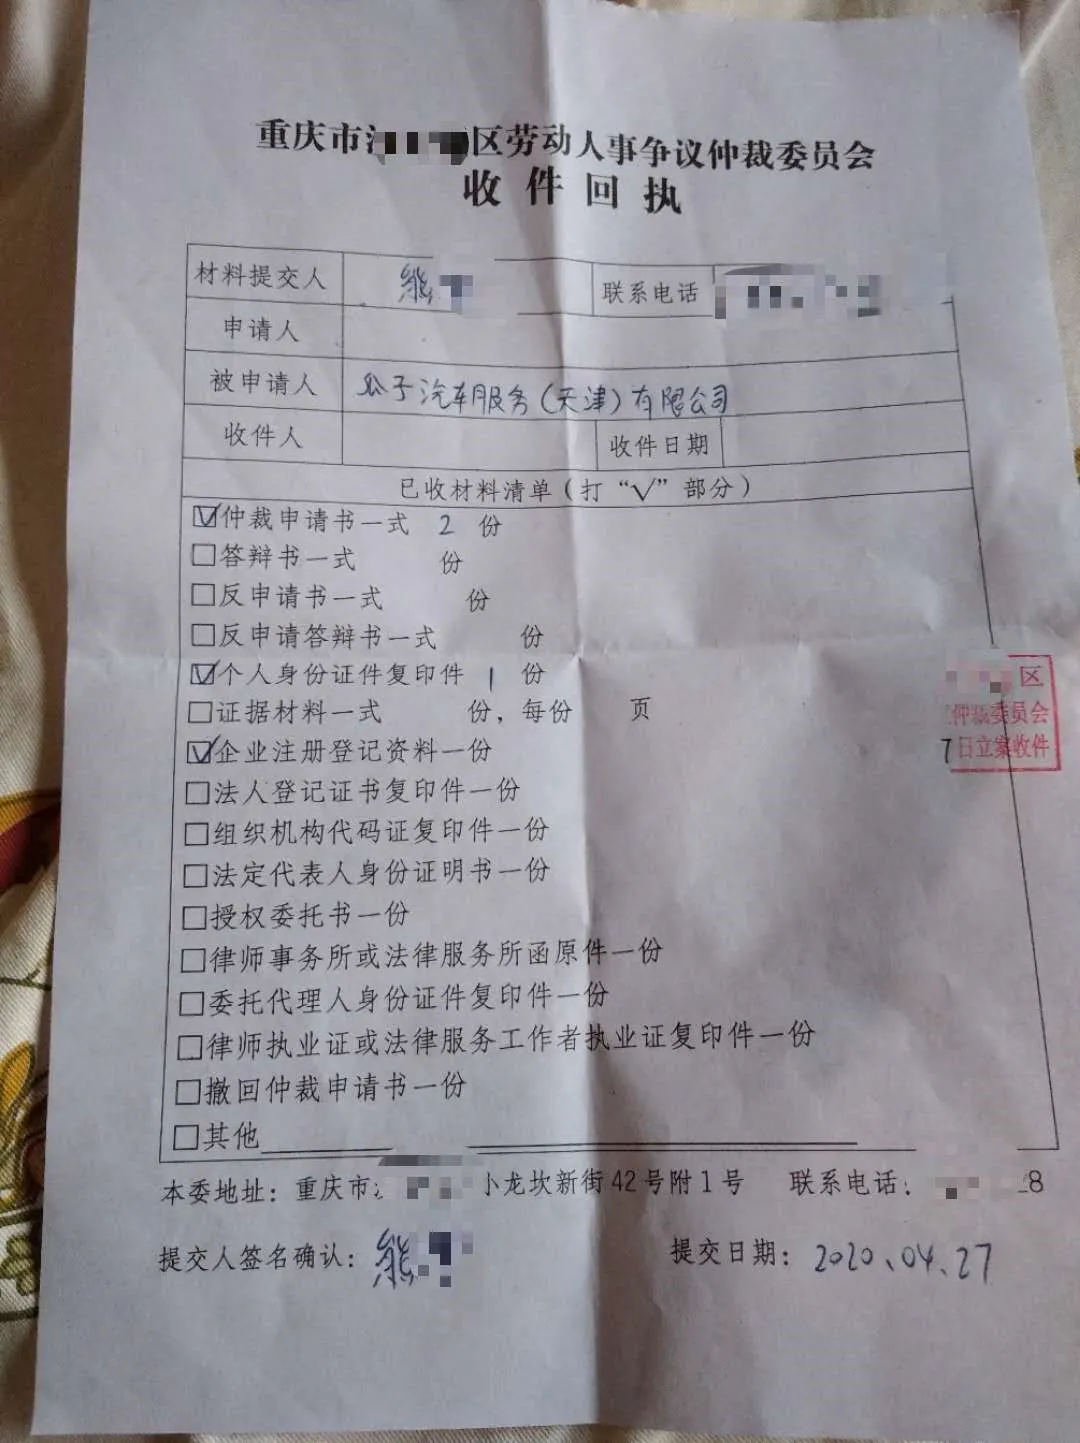 重庆市 区劳动人事争议仲裁委员会
收件回执
材料提交人 熊 联系电话
申请人
被申请人 瓜子汽车服务(天津)有限公司
收件人 收件日期
已收材料清单(打“√”部分)
☑仲裁申请书一式 2 份
□答辩书一式 份
□反申请书一式 份
□反申请答辩书一式 份
☑个人身份证件复印件 1 份
□证据材料一式 份,每份 页
☑企业注册登记资料一份
□法人登记证书复印件一份
□组织机构代码证复印件一份
□法定代表人身份证明书一份
□授权委托书一份
□律师事务所或法律服务所函原件一份
□委托代理人身份证件复印件一份
□律师执业证或法律服务工作者执业证复印件一份
□撤回仲裁申请书一份
□其他
区
仲裁委员会
7日立案收件
本委地址:重庆市 小龙坎新街42号附1号 联系电话: 8
提交人签名确认:熊 提交日期:2020.04.27